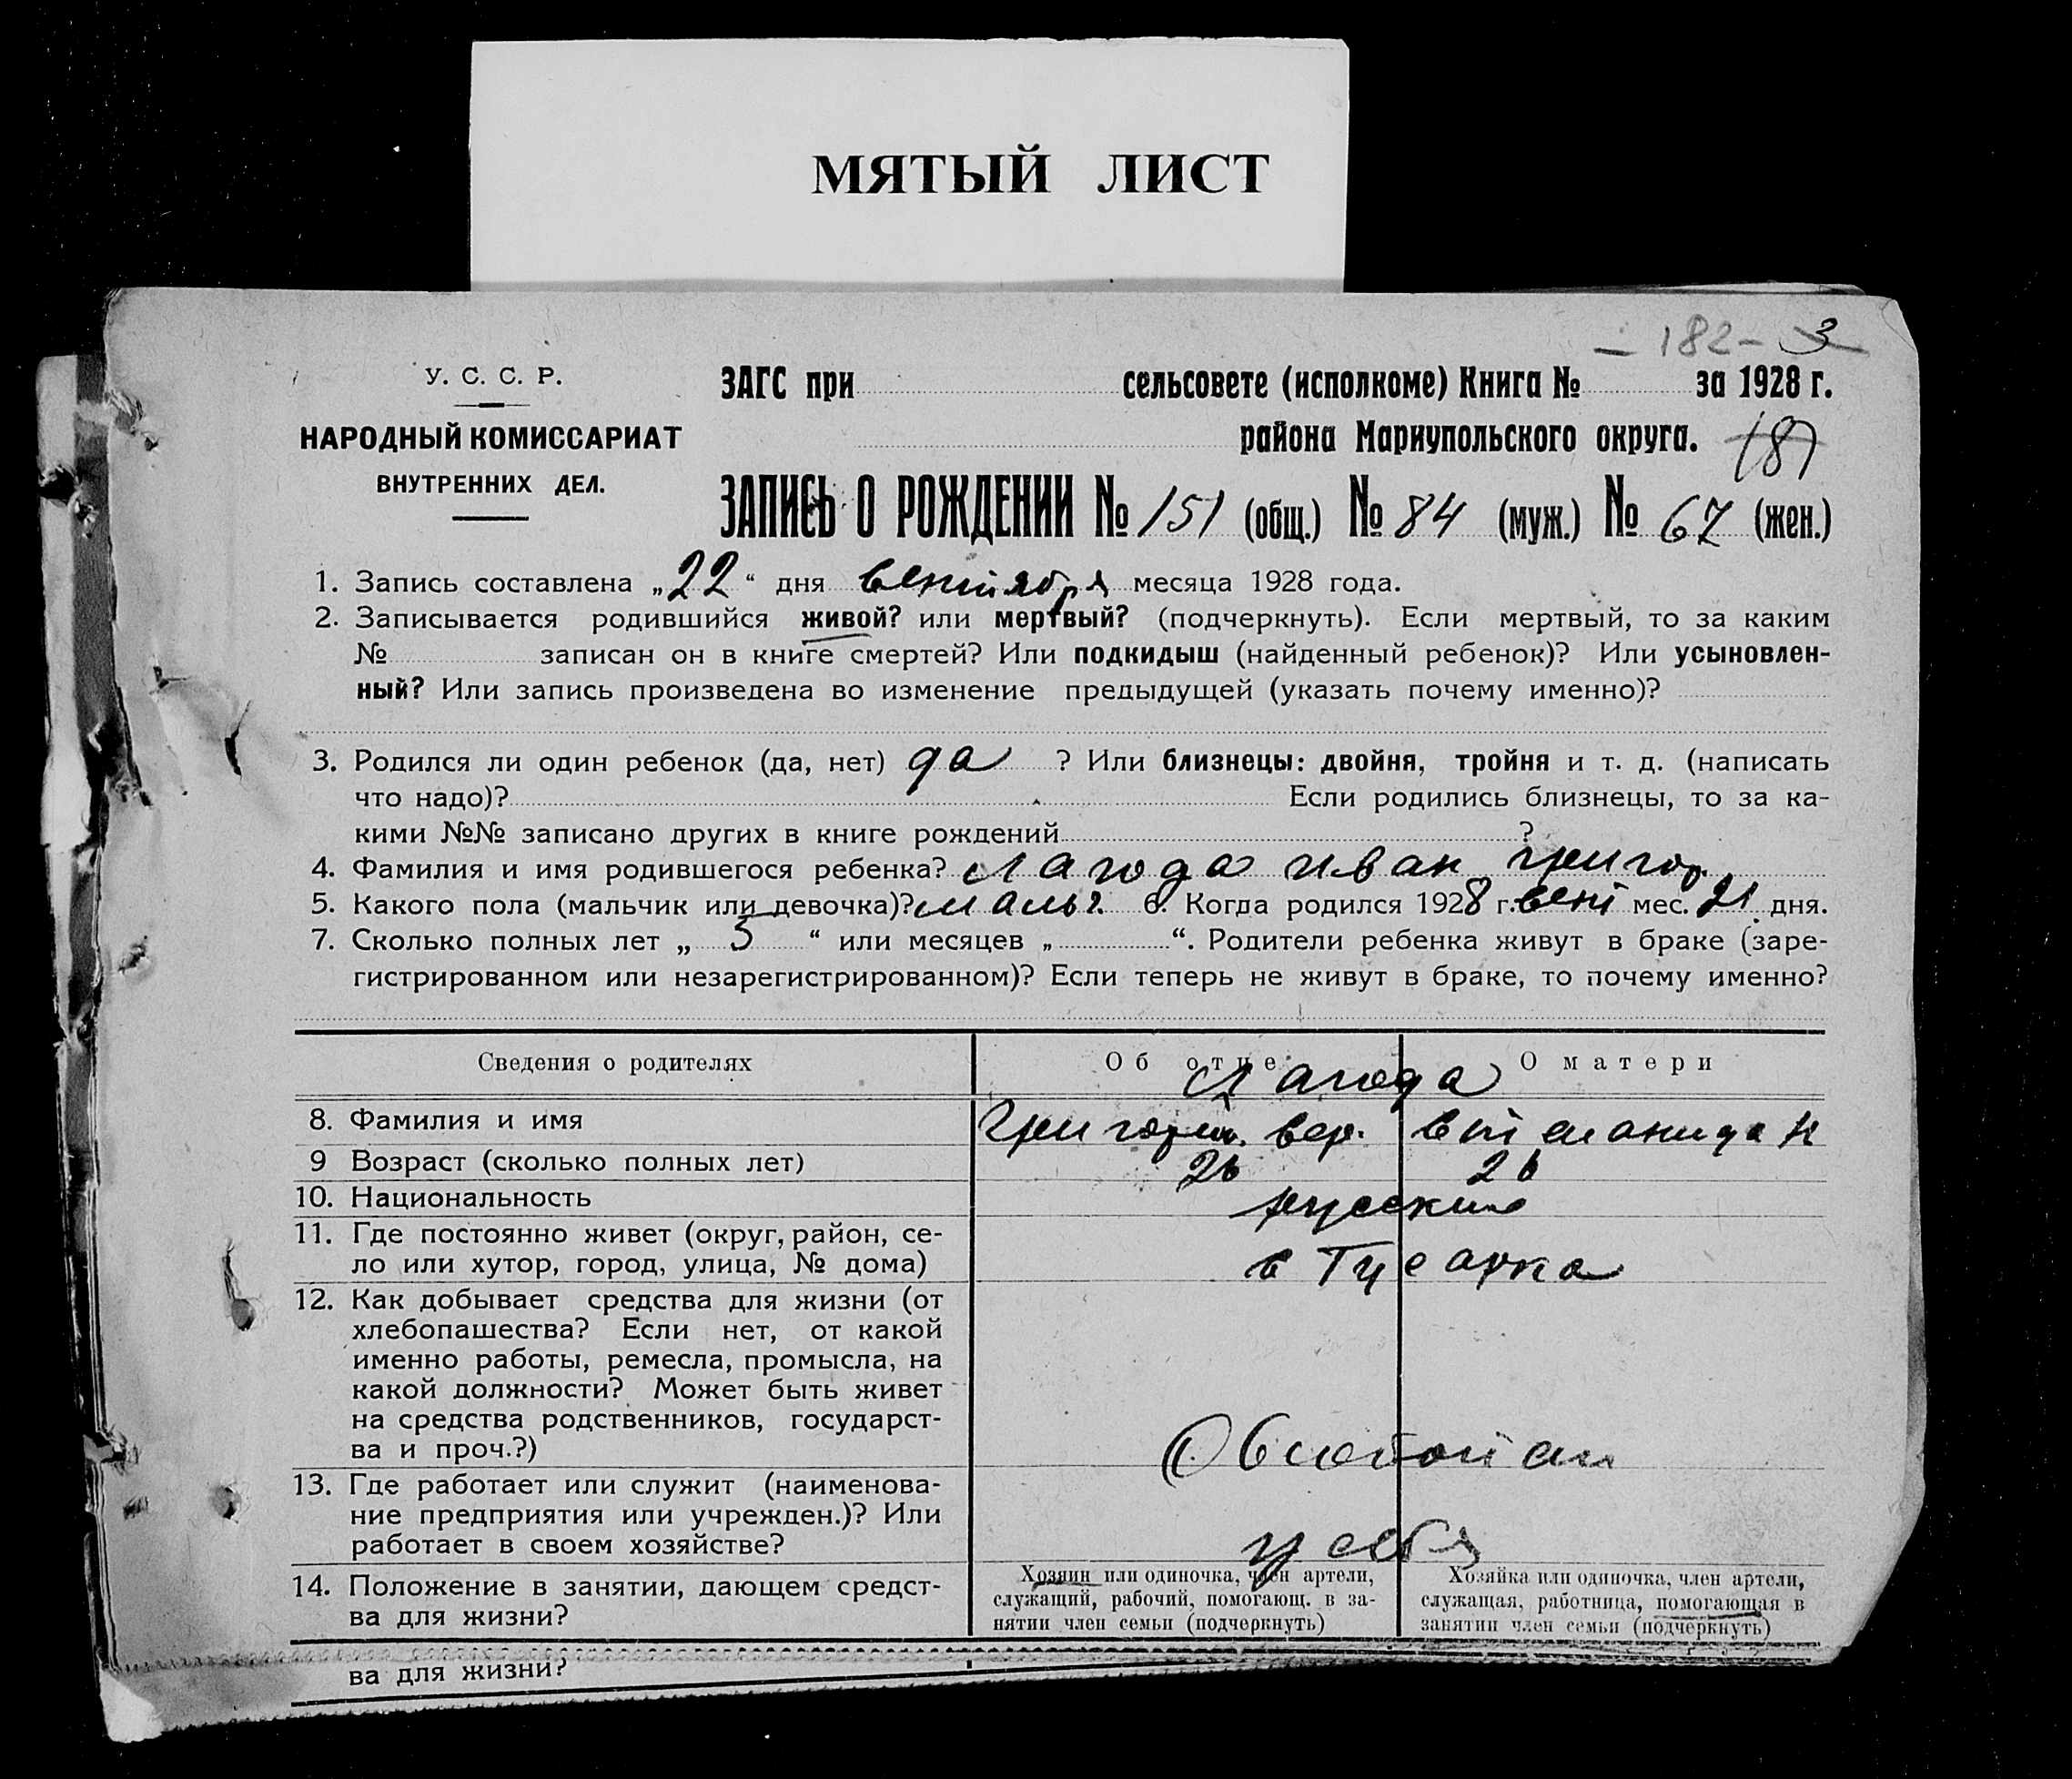 МЯТЫЙ ЛИСТ
— 182 — 3
У. С. С. Р.
ЗАГС при сельсовете (исполкоме) Книга № за 1928 г.
НАРОДНЫЙ КОМИССАРИАТ
района Мариупольского округа.
181
ВНУТРЕННИХ ДЕЛ.
ЗАПИСЬ О РОЖДЕНИИ № 151 (общ.) № 84 (муж.) № 67 (жен.)
1. Запись составлена „22“ дня сентября месяца 1928 года.
2. Записывается родившийся живой? или мертвый? (подчеркнуть). Если мертвый, то за каким
№ записан он в книге смертей? Или подкидыш (найденный ребенок)? Или усыновлен-
ный? Или запись произведена во изменение предыдущей (указать почему именно)?
3. Родился ли один ребенок (да, нет) да ? Или близнецы: двойня, тройня и т. д. (написать
что надо)? Если родились близнецы, то за ка-
кими №№ записано других в книге рождений ?
4. Фамилия и имя родившегося ребенка? Лагода Иван Григор.
5. Какого пола (мальчик или девочка)? мальч. 6. Когда родился 1928 г. сент мес. 21 дня.
7. Сколько полных лет „ 5 “ или месяцев „ “. Родители ребенка живут в браке (заре-
гистрированном или незарегистрированном)? Если теперь не живут в браке, то почему именно?
Сведения о родителях Об отце О матери
Лагода
8. Фамилия и имя Григорий. сер.
9 Возраст (сколько полных лет) 26 26
10. Национальность русские
11. Где постоянно живет (округ, район, се-
ло или хутор, город, улица, № дома)
с Гусарка
12. Как добывает средства для жизни (от
хлебопашества? Если нет, от какой
именно работы, ремесла, промысла, на
какой должности? Может быть живет
на средства родственников, государст-
ва и проч.?)
13. Где работает или служит (наименова-
ние предприятия или учрежден.)? Или
работает в своем хозяйстве?
у себя
14. Положение в занятии, дающем средст-
ва для жизни?
Хозяин или одиночка, член артели,
служащий, рабочий, помогающ. в за-
нятии член семьи (подчеркнуть)
Хозяйка или одиночка, член артели,
служащая, работница, помогающая в
занятии член семьи (подчеркнуть)
ва для жизни?